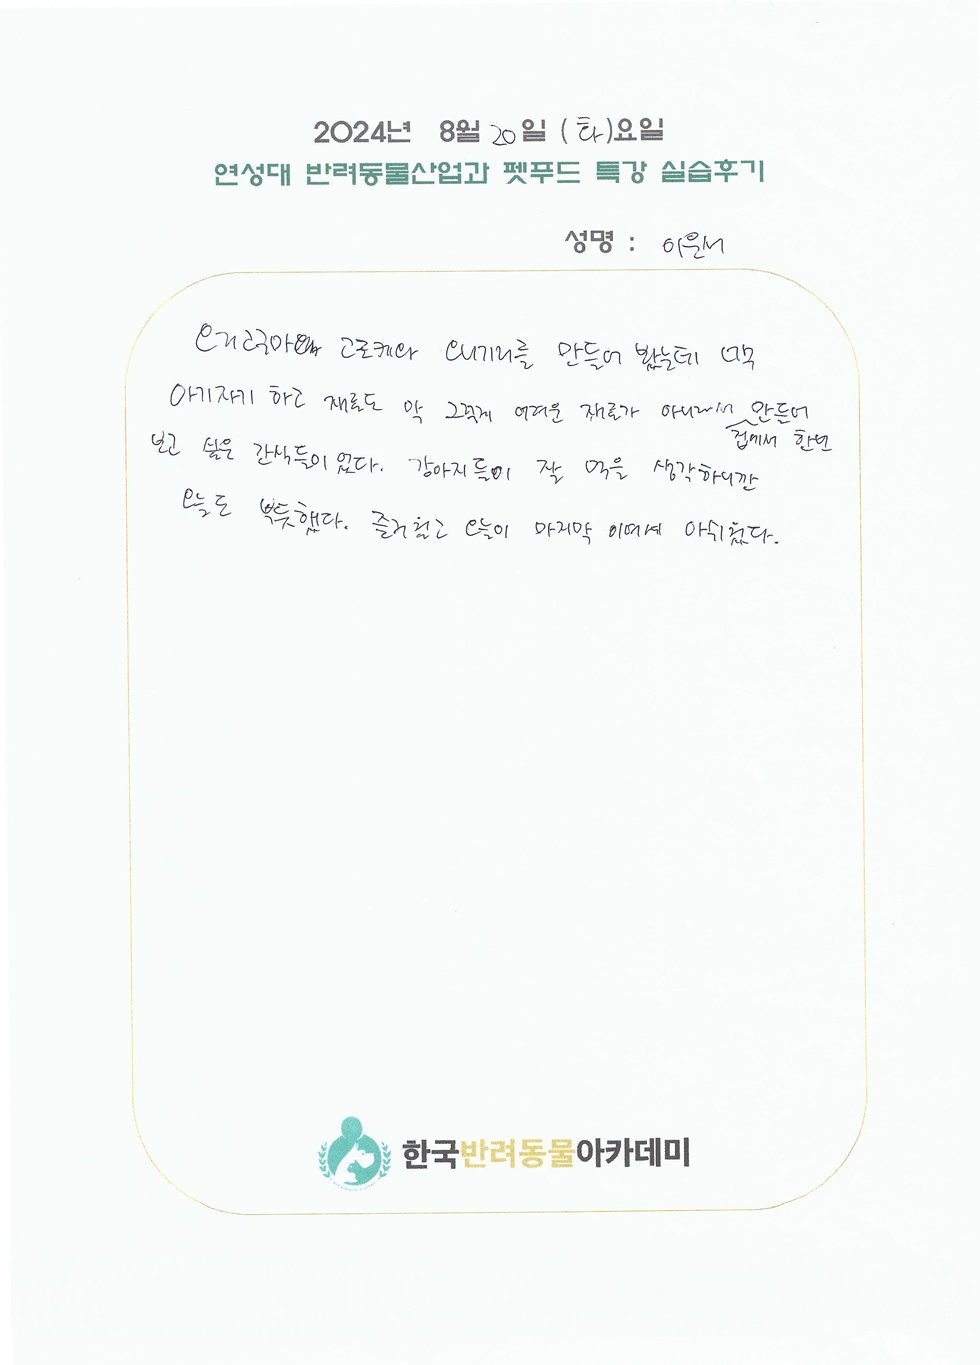 2024년 8월 20일 (화)요일
연성대 반려동물산업과 펫푸드 특강 실습후기
성명 : 이은서
고로케와 만들어 봤는데 너무
아기자기 하고 재료도 막 그렇게 어려운 재료가 아니라서 만들어
집에서 한번
보고 싶은 간식들이 었다. 강아지들이 잘 먹을 생각하니깐
오늘도 뿌듯했다. 즐거웠고 오늘이 마지막 이여서 아쉬웠다.
한국반려동물아카데미